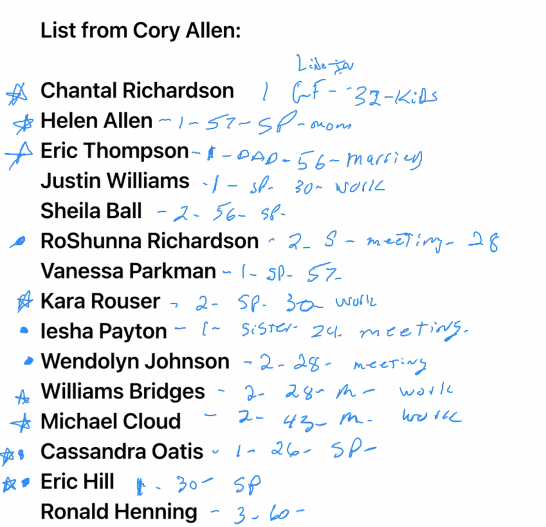 List from Cory Allen:
Live-In
Chantal Richardson 1 GF - 32-Kids
Helen Allen - 1 - 57 - SP - mom
Eric Thompson - 1 - DAD - 56 - married
Justin Williams - 1 - SP. 30 - work
Sheila Ball - 2 - 56 - SP -
RoShunna Richardson - 2 - S - meeting - 28
Vanessa Parkman - 1 - SP - 57 -
Kara Rouser - 2 - SP. 30 work
Iesha Payton - 1 - sister - 24. meeting.
Wendolyn Johnson - 2 - 28 - meeting
Williams Bridges - 2 - 28 - m - work
Michael Cloud - 2 - 43 - m. work
Cassandra Oatis - 1 - 26 - SP -
Eric Hill 1. 30 - SP
Ronald Henning - 3 - 60 -